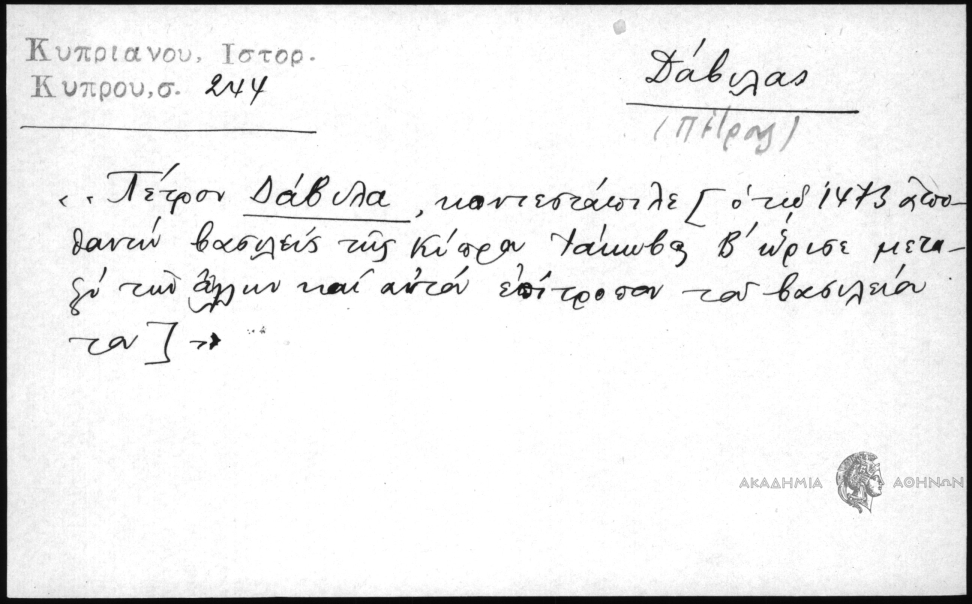 Κυπριανου, Ιστορ.
Κυπρου, σ. 244
Δάβιλας
(Πέτρος)
«.. Πέτρον Δάβιλα, κοντεστάπιλε [ὁ τῷ 1473 ἀπο-
θανὼν βασιλεὺς τῆς Κύπρου Ἰάκωβος Β΄ ὥρισε μετα-
ξὺ τῶν ἄλλων καὶ αὐτὸν ἐπίτροπον τοῦ βασιλείου
του] »
ΑΚΑΔΗΜΙΑ ΑΘΗΝΩΝ